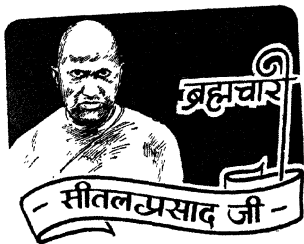 ब्रह्मचारी
- सीतल प्रसाद जी -